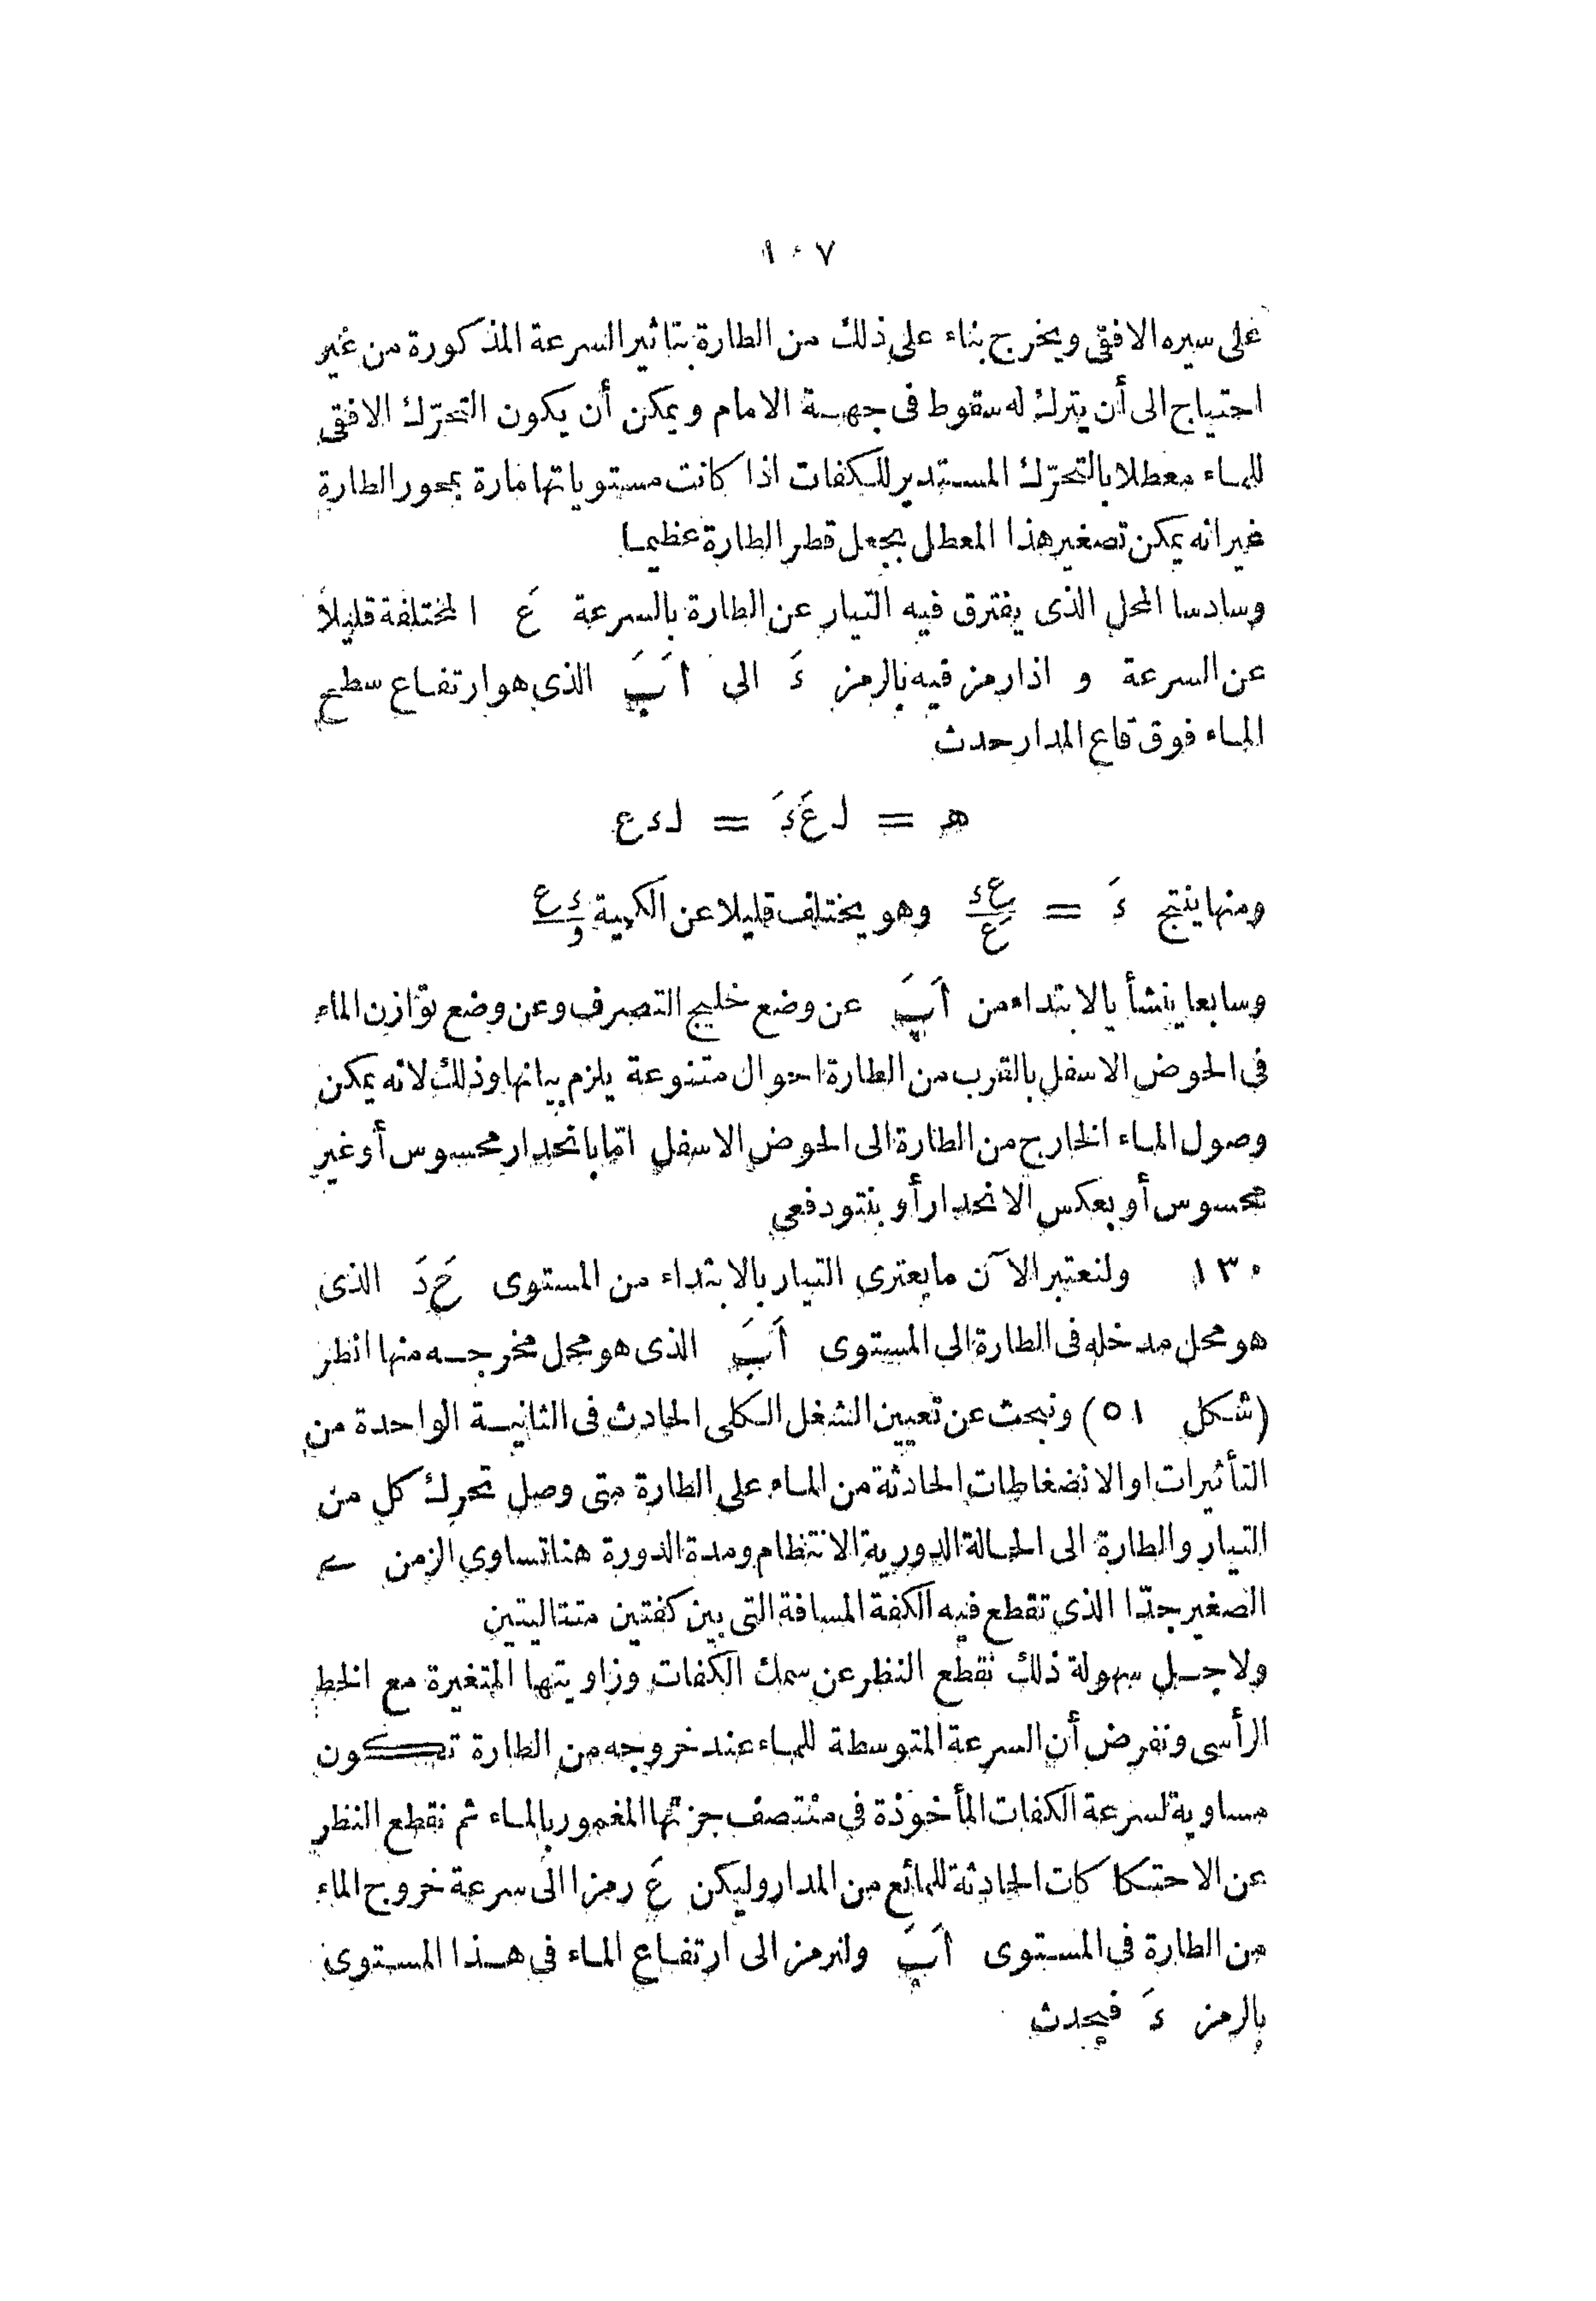 ١٠٧
على سيره الافقى ويخرج بناء على ذلك من الطارة بتاثير السرعة المذكورة من غير
احتياج الى أن يترك له سقوط فى جهة الامام ويمكن أن يكون التحرّك الافقى
للماء معطلا بالتحرّك المستدير للكفات اذا كانت مستوياتها مارة بمحور الطارة
غير انه يمكن تصغير هذا المعطل بجعل قطر الطارة عظيما
وسادسا المحل الذى يفترق فيه التيار عن الطارة بالسرعة عَ المختلفة قليلا
عن السرعة و اذا رمز فيه بالرمز ءَ الى اَبَ الذى هو ارتفاع سطح
الماء فوق قاع المدار حدث
هـ = ل عَ ءَ = ل ء ع
ومنها ينتج ءَ = ع ء / عَ وهو يختلف قليلا عن الكمية ء ع / و
وسابعا ينشأ بالابتداء من اَبَ عن وضع خليج التصرف وعن وضع توازن الماء
فى الحوض الاسفل بالقرب من الطارة احوال متنوعة يلزم بيانها وذلك لانه يمكن
وصول الماء الخارج من الطارة الى الحوض الاسفل امّا بانحدار محسوس أو غير
محسوس أو بعكس الانحدار أو بنتو دفعى
١٣٠ ولنعتبر الآن ما يعترى التيار بالابتداء من المستوى حَ دَ الذى
هو محل مدخله فى الطارة الى المستوى اَبَ الذى هو محل مخرجه منها انظر
(شكل ٥١) ونبحث عن تعيين الشغل الكلى الحادث فى الثانية الواحدة من
التأثيرات او الانضغاطات الحادثة من الماء على الطارة متى وصل تحرك كل من
التيار والطارة الى الحالة الدورية الانتظام ومدة الدورة هنا تساوى الزمن
الصغير جدّا الذى تقطع فيه الكفة المسافة التى بين كفتين متتاليتين
ولاجل سهولة ذلك نقطع النظر عن سمك الكفات وزاويتها المتغيرة مع الخط
الرأسى ونفرض أن السرعة المتوسطة للماء عند خروجه من الطارة تكون
مساوية لسرعة الكفات المأخوذة فى منتصف جزئها المغمور بالماء ثم نقطع النظر
عن الاحتكاكات الحادثة للمائع من المدار وليكن عَ رمزا الى سرعة خروج الماء
من الطارة فى المستوى اَبَ ولنرمز الى ارتفاع الماء فى هذا المستوى
بالرمز ءَ فيحدث